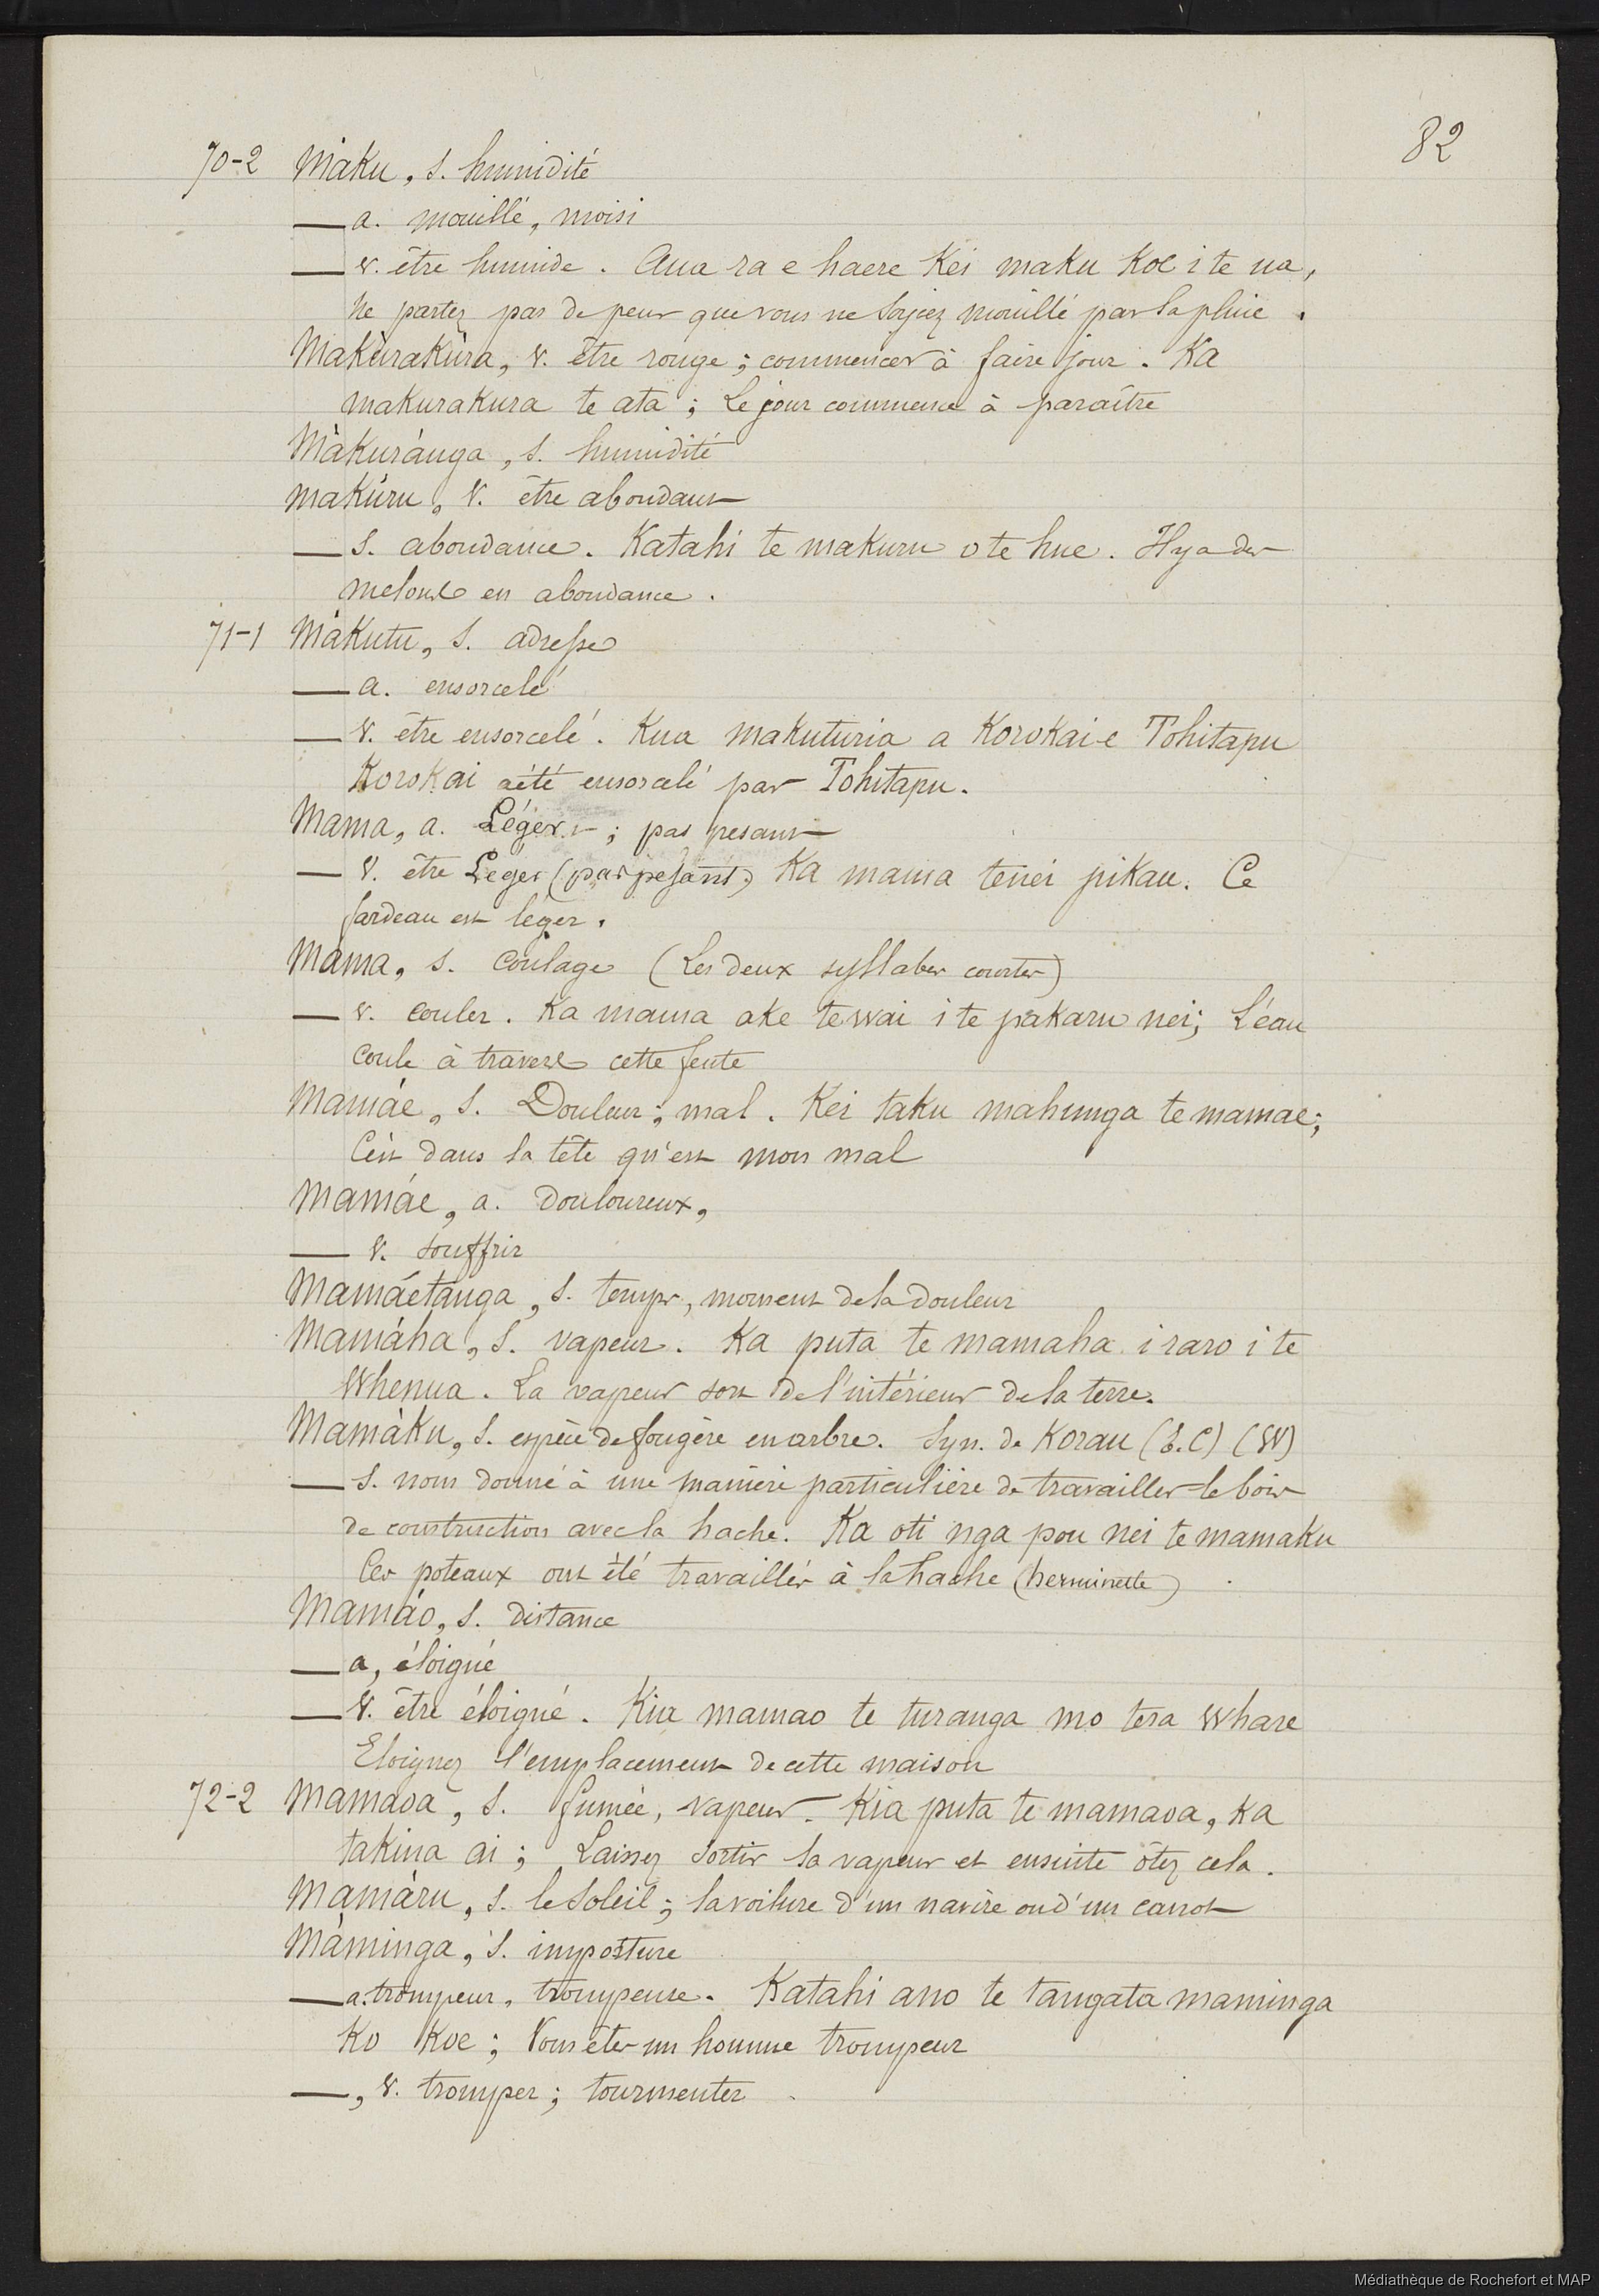 82
70-2 Màku, s. humidité
— a. mouillé, moisi
— v. être humide. Aua ra e haere Kei maku Koe i te ua,
Ne partez pas de peur que vous ne soyiez mouillé par la pluie.
Makùrakùra, v. être rouge; commencer à faire jour. Ka
makurakura te ata; Le jour commence à paraître
Màkuránga, s. humidité
makúru, v. être abondant
— s. abondance. Katahi te makuru o te hue. Il y a des
melons en abondance.
71-1 Màkutu, s. adresse
— a. ensorcelé
— v. être ensorcelé. Kua makuturia a Korokai e Tohitapu
Korokai a été ensorcelé par Tohitapu.
Mama, a. Léger; pas pesant
— v. être Leger (pas pesant) Ka mama tenei pikau. Ce
fardeau est léger.
Mama, s. coulage (Les deux syllabes courtes)
— v. couler. Ka mama ake te wai i te pakaru nei; L'éau
coule à travers cette fente
Mamáe, s. Douleur; mal. Kei taku mahunga te mamae;
C'est dans la tête qu'est mon mal
Mamáe, a. Douloureux,
— v. souffrir
Mamáetánga, s. temps, moment de la douleur
Mamáha, s. vapeur. Ka puta te mamaha i raro i te
Whenua. La vapeur sort de l'intérieur de la terre.
Mamàku, s. espèce de fougère en arbre. Syn. de Korau (E.C) (W)
— s. nom donné à une manière particulière de travailler le bois
de construction avec la hache. Ka oti nga pou nei te mamaku
Ces poteaux ont été travaillés à la hache (herminette)
Mamáo, s. distance
— a, éloigné
— v. être éloigné. Kia mamao te turanga mo tera Whare
Eloignez l'emplacement de cette maison
72-2 Mamaoa, s. fumée, vapeur. Kia puta te mamaoa, Ka
takina ai; Laissez sortir la vapeur et ensuite ôtez cela.
Mamàru, s. le Soleil; la voilure d'un navire ou d'un canot
Màminga, s. imposture
— a. trompeur, trompeuse. Katahi ano te tangata maminga
Ko Koe; Vous êtes un homme trompeur
—, v. tromper; tourmenter
Médiathèque de Rochefort et MAP